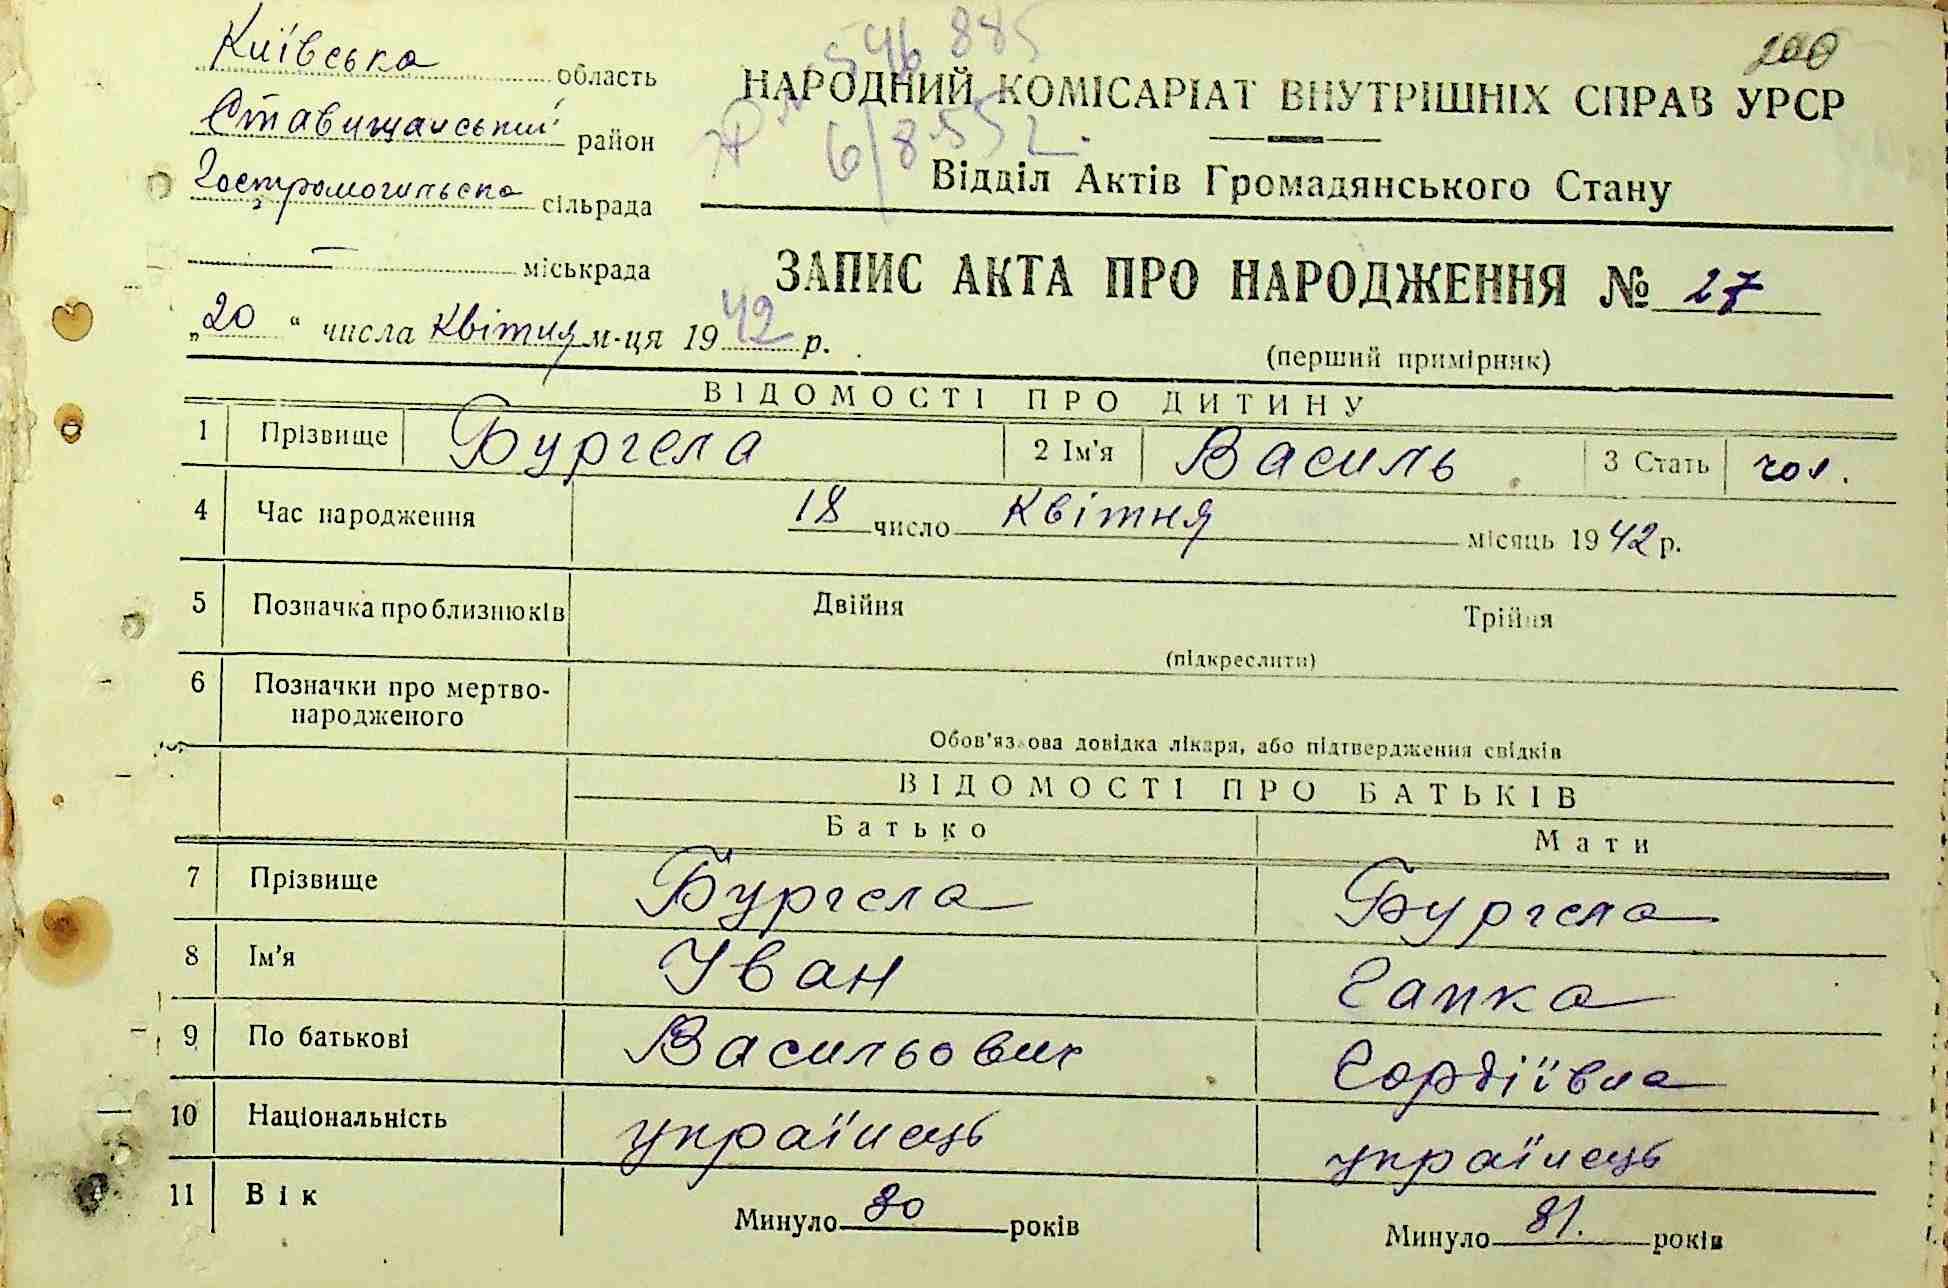 200
546 885
6/8.55
Київська область
Ставищанський район
Гостромогильська сільрада
— міськрада
„20“ числа квітня м-ця 1942 р.
НАРОДНИЙ КОМІСАРІАТ ВНУТРІШНІХ СПРАВ УРСР
Відділ Актів Громадянського Стану
ЗАПИС АКТА ПРО НАРОДЖЕННЯ № 27
(перший примірник)
ВІДОМОСТІ ПРО ДИТИНУ
1 Прізвище Бургела 2 Ім'я Василь 3 Стать чол.
4 Час народження 18 число квітня місяць 1942 р.
5 Позначка про близнюків Двійня Трійня
(підкреслити)
6 Позначки про мертво-
народженого
Обов'язкова довідка лікаря, або підтвердження свідків
ВІДОМОСТІ ПРО БАТЬКІВ
Батько Мати
7 Прізвище Бургела Бургела
8 Ім'я Іван Гапка
9 По батькові Васильович Гордіївна
10 Національність українець українець
11 Вік Минуло 30 років Минуло 31. років